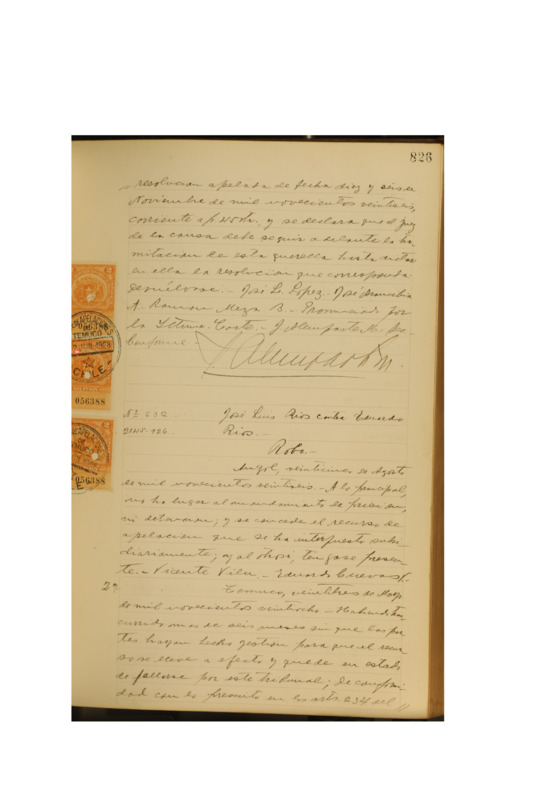 826
resolucion apelada de fecha diez y seis de
Noviembre de mil novecientos veintiseis,
corriente a f. 20 vta, y se declara que el juez
de la causa debe seguir adelante la tra-
mitacion de esta querella hasta dictar
en ella la resolucion que corresponda
Devuélvase. - José L. López - José
A. Ramon Meza B. - Pronunciada por
la Iltma. Corte. - J. Alemparte M. Se-
cretario
APELACIONES
TEMUCO
CHILE
056388
056388
Nº 632
José Luis Rios contra Eduardo
Rios. -
Robo. -
Angol, veintiuno de Agosto
de mil novecientos veintiseis. - A lo principal,
no ha lugar al mandamiento de prision,
ni detencion; y se concede el recurso de
apelacion que se ha interpuesto subsi-
diariamente; y al otrosi, tengase presen-
te. - Vicente Vila - Eduardo Cuevas
2º
Temuco, veintitres de Mayo
de mil novecientos veintiocho - Habiendo tras-
currido mas de seis meses sin que las par-
tes hayan hecho gestion para que el recur-
so se lleve a efecto y quede en estado
de fallarse por este tribunal; De confor-
midad con lo prescrito en los arts. 234 del